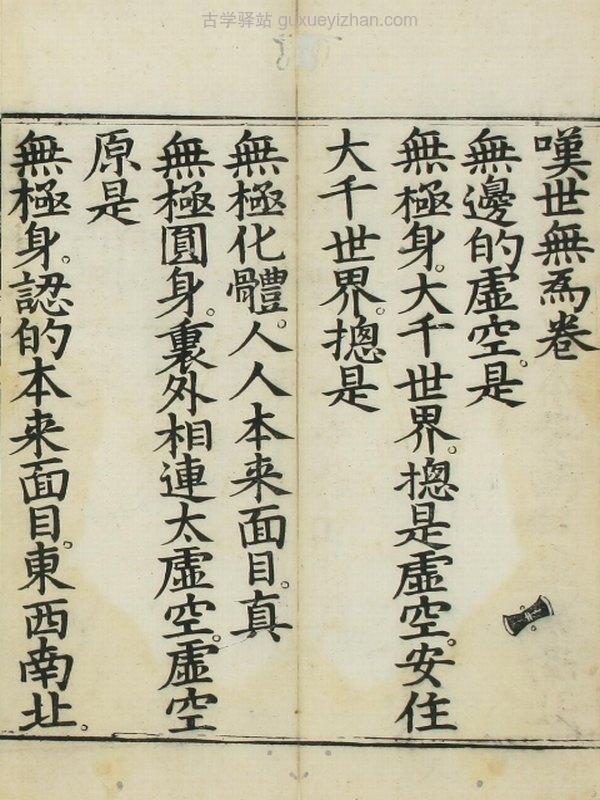 古学驿站 guxueyizhan.com
嘆世無為卷
無邊的虛空。是
無極身。大千世界。揔是虛空。安住
大千世界。揔是
無極化體。人人本来面目。真
無極圓身。裏外相連太虛空。虛空
原是
無極身。認的本来面目。東西南北。